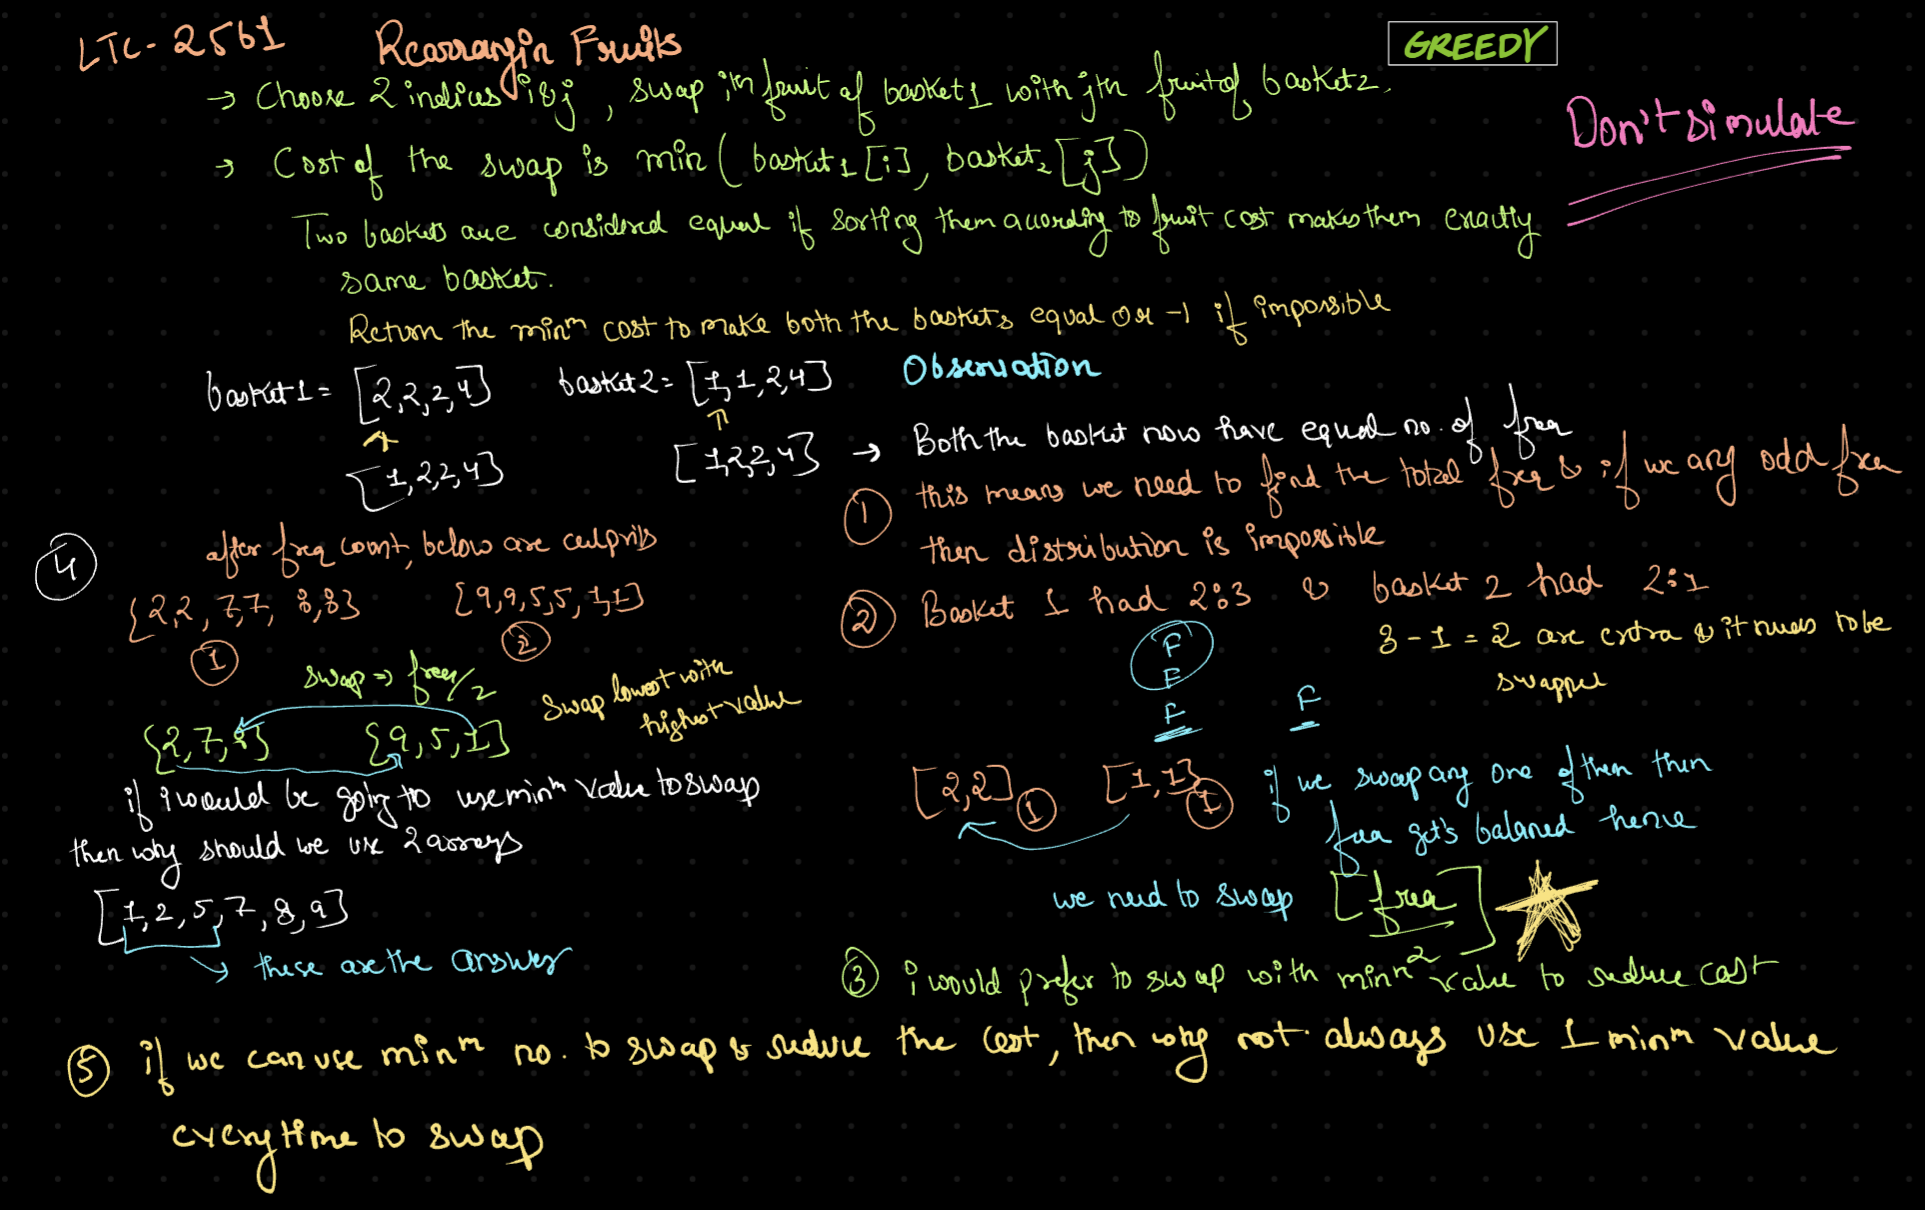 LTC-2561 Rearrangin Fruits
GREEDY
→ Choose 2 indices i & j , swap ith fruit of basket1 with jth fruit of basket2.
Don't simulate
→ Cost of the swap is min ( basket1 [i], basket2 [j])
Two baskets are considered equal if sorting them according to fruit cost makes them exactly
same basket.
Return the minm cost to make both the baskets equal or -1 if impossible
basket1 = [2,2,2,4] basket2 = [1,1,2,4]
[1,2,2,4] [1,2,2,4]
Observation
→ Both the basket now have equal no. of freq
① this means we need to find the total freq & if we any odd freq
then distribution is impossible
② Basket 1 had 2:3 & basket 2 had 2:1
3 - 1 = 2 are extra & it needs to be
swapped
F
F
F F
[2,2] ① [1,1] ① if we swap any one of them then
freq get's balanced hence
we need to swap [freq/2]
③ i would prefer to swap with minm value to reduce cost
④ after freq count, below are culprits
{2,2, 7,7, 8,8} [9,9,5,5,1,1]
① ②
swap => freq/2
swap lowest with
highest value
{2,7,8} {9,5,1}
if i would be going to use minm value to swap
then why should we use 2 arrays
[1,2,5,7,8,9]
↳ these are the answer
⑤ if we can use minm no. to swap & reduce the cost, then why not always use 1 minm value
everytime to swap